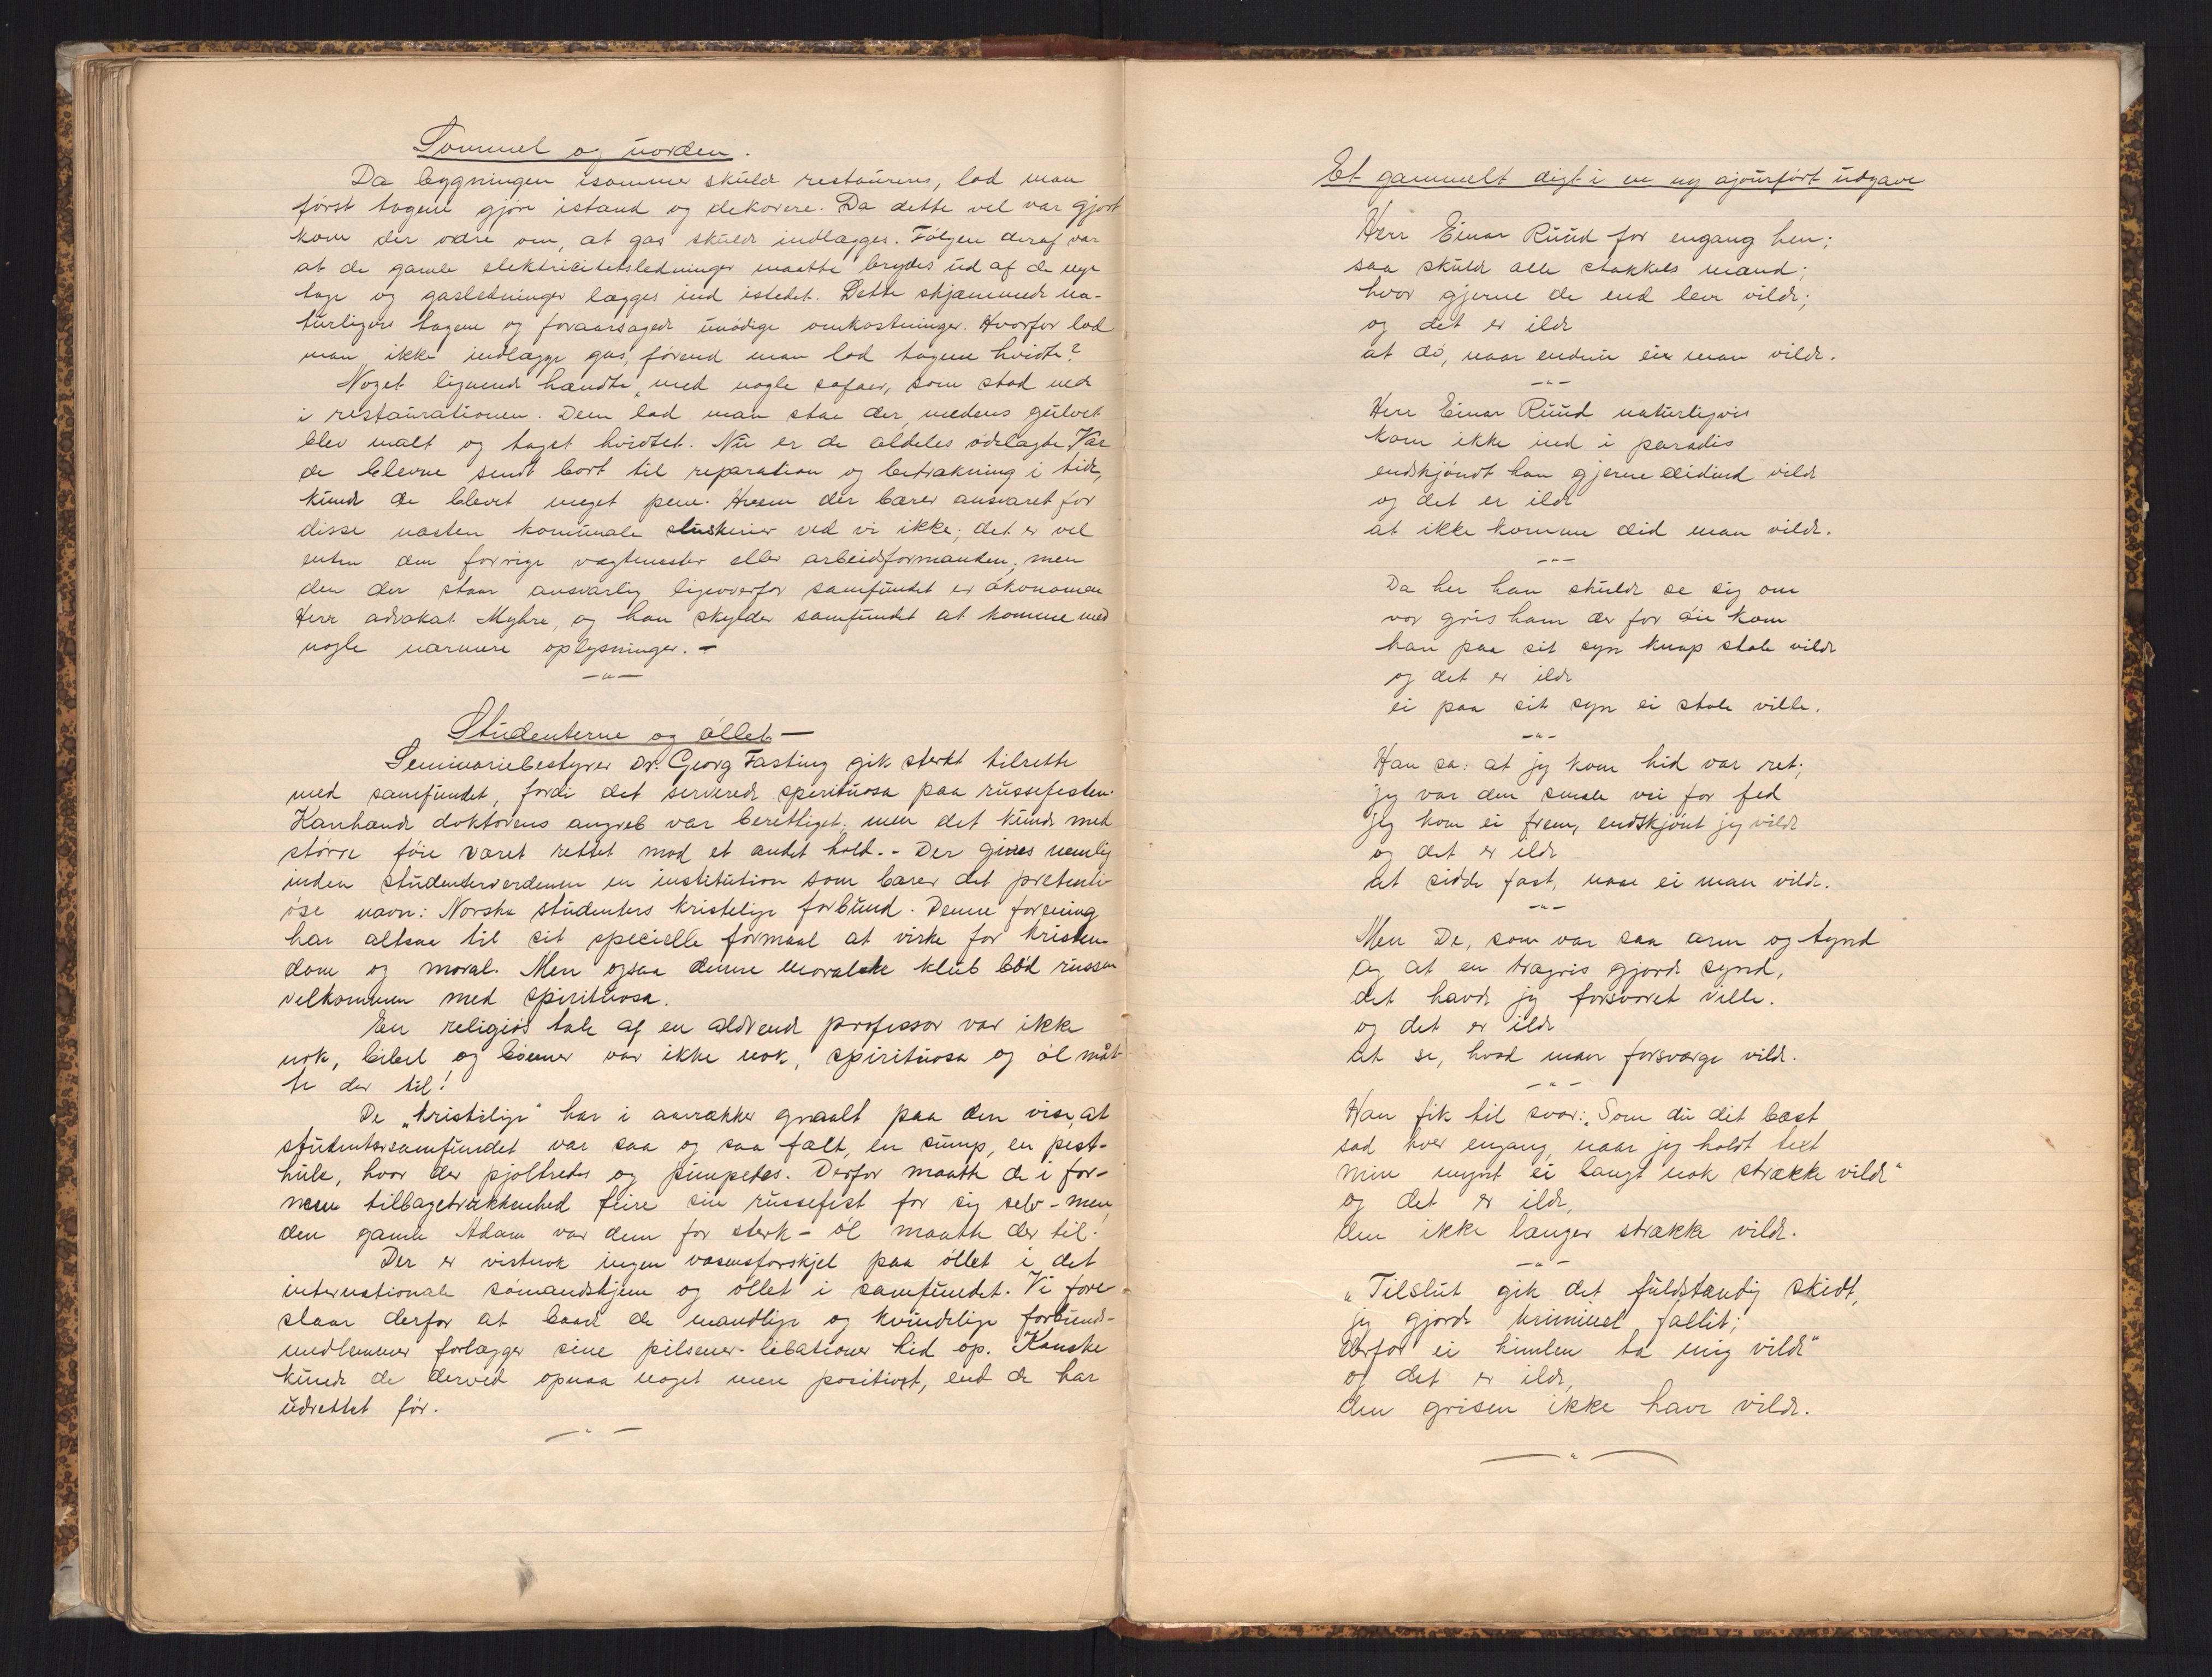 Tommel og uorden.
Da bygningen isommer skulde restaureres, lod man
først tagene gjøre istand og dekorere. Da dette vel var gjort
kom der ordre om, at gas skulde indlægges. Følgen deraf var
at de gamle elektricitetsledninger maatte brydes ud af de nye
tage og gasledninger lægges ind istedet. Dette skjæmmede na-
turligvis tagene og foraarsagede unødige omkostninger. Hvorfor lod
man ikke indlægge gas, førend man lod tagene hvidte?
Noget lignende hændte med nogle sofaer, som stod nede
i restaurationen. Dem lod man staa der, medens gulvet
blev malt og taget hvidtet. Nu er de aldeles ødelagte. Var
de blevne sendt bort til reparation og betrækning i tide,
kunde de blevet meget pene. Hvem der bærer ansvaret for
disse næsten komunale sluskerier ved vi ikke; det er vel
enten den forrige vagtmester eller arbeidsformanden; men
den der staar ansvarlig ligeoverfor samfundet er økonomen
Herr advokat Myhre, og han skylder samfundet at komme med
nogle nærmere oplysninger. –
—"—
Studenterne og øllet —
Seminariebestyrer Dr. Georg Fasting gik sterkt tilrette
med samfundet, fordi det serverede spirituosa paa russefesten.
Kanhænde doktorens angreb var berettiget; men det kunde med
større føie været rettet mod et andet hold. – Der gives nemlig
inden studenterverdenen en institution som bærer det pretenti-
øse navn: Norske studenters kristelige forbund. Denne forening
har altsaa til sit specielle formaal at virke for kristen-
dom og moral. Men ogsaa denne moralske klub bød russen
velkommen med spirituosa.
En religiøs tale af en aldrende professor var ikke
nok, bibel og bønner var ikke nok, spirituosa og øl måt-
te der til!
De „kristelige" har i aarrækker graalt paa den vise, at
studentersamfundet var saa og saa fælt, en sump, en pest-
hule, hvor der pjoltredes og pimpedes. Derfor maatte de i for-
nem tilbagetrukkenhed feire sin russefest for sig selv – men,
den gamle Adam var dem for sterk – øl maatte der til!
Der er vistnok ingen væsensforskjel paa øllet i det
internationale sømandshjem og øllet i samfundet. Vi fore-
slaar derfor at baade de mandlige og kvindelige forbunds-
medlemmer forlægger sine pilsener-libationer hid op. Kanske
kunde de derved opnaa noget mere positivt, end de har
udrettet før.
—"—
Et gammelt digt i en ny ajourført udgave
Herr Einar Ruud for engang hen;
saa skulde alle stakkels mænd;
hvor gjerne de end leve vilde;
og det er ilde
at dø, naar endnu ei man vilde.
—"—
Herr Einar Ruud naturligvis
kom ikke ind i paradis
endskjøndt han gjerne didind vilde
og det er ilde
at ikke komme did man vilde.
—"—
Da her han skulde se sig om
vor gris ham der for øie kom
han paa sit syn knap stole vilde
og det er ilde
ei paa sit syn ei stole ville.
—"—
Han sa: at jeg kom hid var ret;
jeg var den smale vei for fed
jeg kom ei frem, endskjønt jeg vilde
og det er ilde
at sidde fast, naar ei man vilde.
—"—
Men De, som var saa arm og tynd
og at en trægris gjorde synd,
det havde jeg forsvoret ville.
og det er ilde
at se, hvad man forsværge vilde.
—"—
Han fik til svar: „Som du dit bæst
sad hver engang, naar jeg holdt text
min mynt ei langt nok strække vilde"
og det er ilde,
den ikke længer strække vilde.
—"—
„Tilslut gik det fuldstændig skidt,
jeg gjorde kriminel fallit;
derfor ei himlen ta mig vilde"
og det er ilde,
den grisen ikke have vilde.
—"—